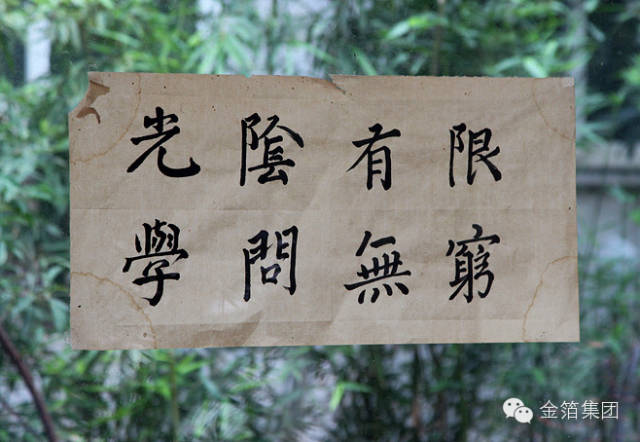 光陰有限
學問無窮
金箔集团